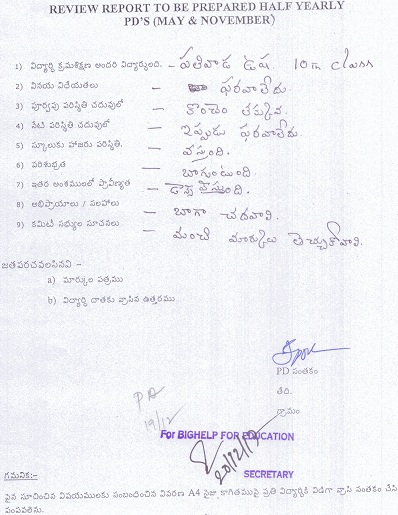 REVIEW REPORT TO BE PREPARED HALF YEARLY
PD'S (MAY & NOVEMBER)
1) విద్యార్థి క్రమశిక్షణ అందరి విద్యార్థులది. - పతివాడ ఉష 10th class
2) వినయ విధేయతలు - ఫరవాలేదు.
3) పూర్వపు పరిస్థితి చదువులో - కొంచెం తక్కువ.
4) నేటి పరిస్థితి చదువులో - ఇప్పుడు ఫరవాలేదు.
5) స్కూలుకు హాజరు పరిస్థితి. - వస్తుంది.
6) పరిశుభ్రత - బాగుంటుంది.
7) ఇతర అంశములలో ప్రావీణ్యత - డాన్స్ వేస్తుంది.
8) అభిప్రాయాలు / సలహాలు - బాగా చదవాలి.
9) కమిటీ సభ్యుల సూచనలు - మంచి మార్కులు తెచ్చుకోవాలి.
జతపరచవలసినవి -
a) మార్కుల పత్రము
b) విద్యార్థి దాతకు వ్రాసిన ఉత్తరము
PD సంతకం
తేది.
గ్రామం
PD
19/12
For BIGHELP FOR EDUCATION
20/12/12
SECRETARY
గమనిక:-
పైన సూచించిన విషయములకు సంబంధించిన వివరణ A4 సైజు కాగితముపై ప్రతి విద్యార్థికి విడిగా వ్రాసి సంతకం చేసి
పంపవలెను.